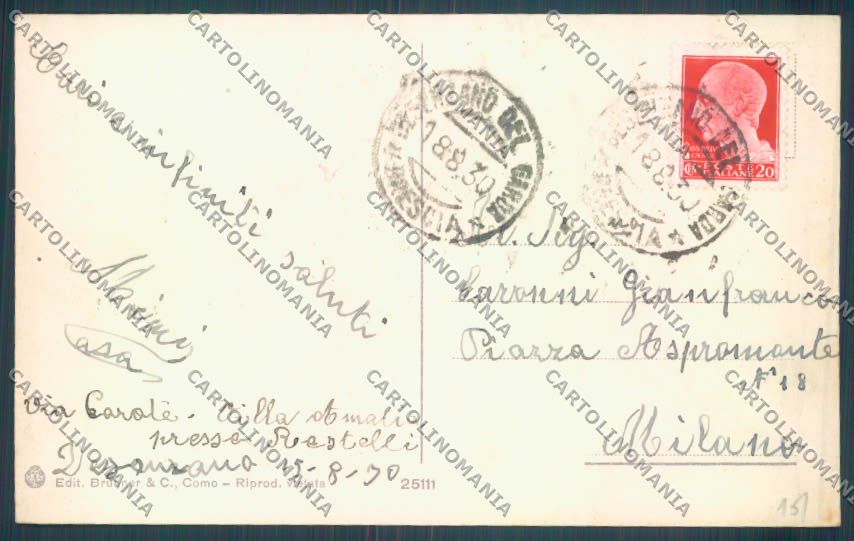 Cari infiniti saluti
Mimi
Casa
via Carotè - Villa Amalia
presso Rastelli
Desenzano 15-8-30
Edit. Brunner & C., Como – Riprod. vietata
25111
DESENZANO DEL GARDA
18.8.30
BRESCIA
POSTE
ITALIANE
20
Sig.
Caronni Gianfranco
Piazza Aspromonte
N° 18
Milano
15/
CARTOLINOMANIA